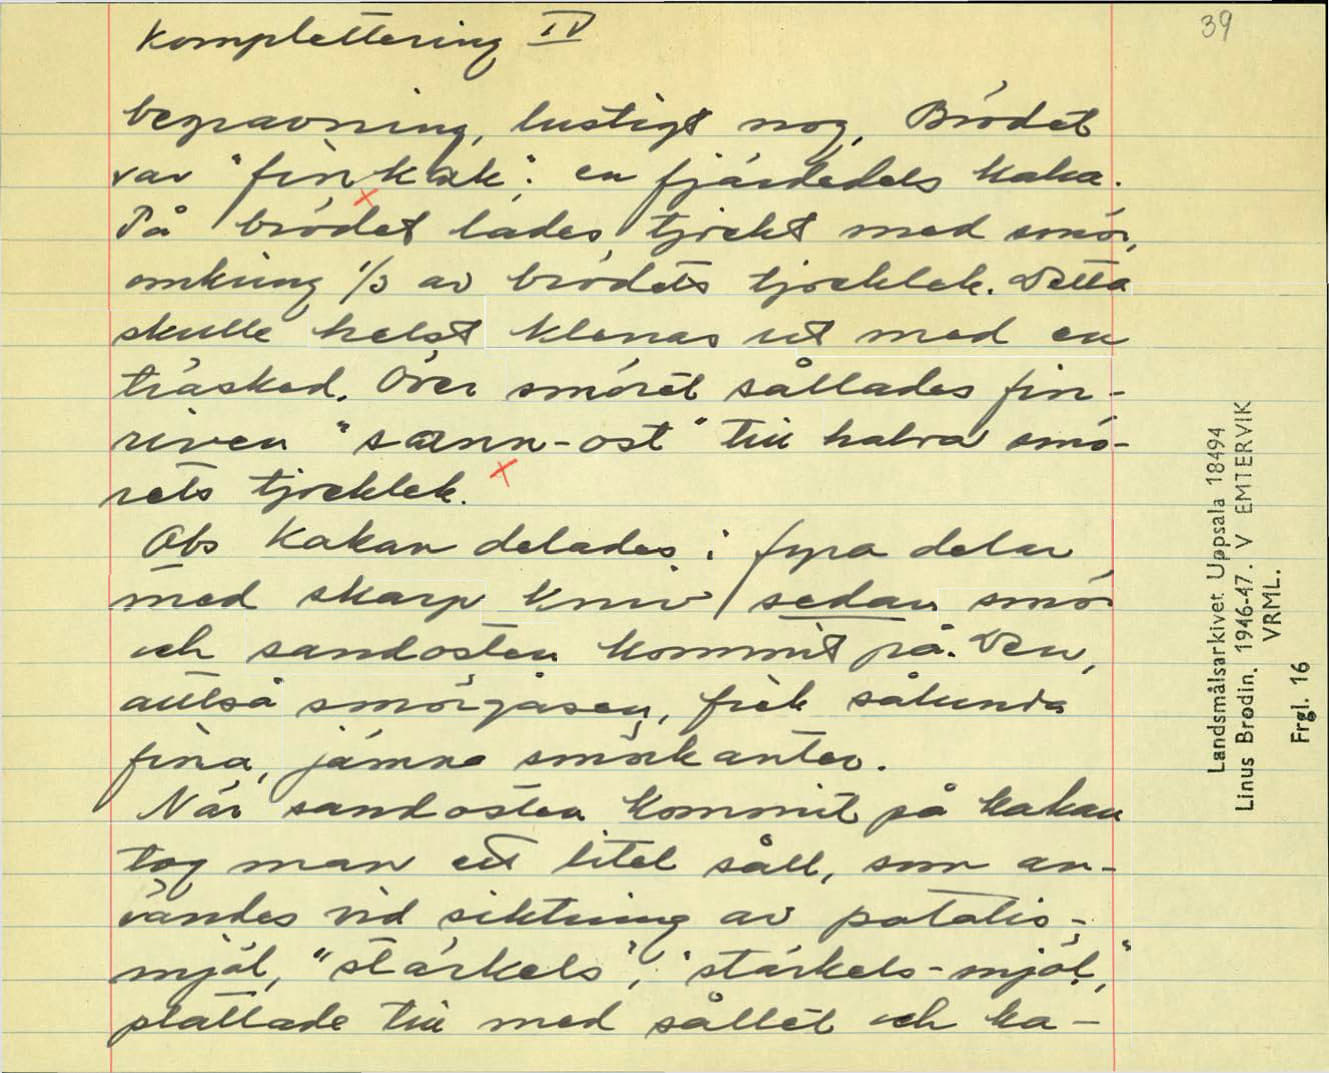 39
Komplettering IV
begravning, lustigt nog. Brödet
var "finkak", en fjärdedels kaka.
På brödet lades tjockt med smör,
omkring 1/3 av brödets tjocklek. Detta
skulle helst klenas ut med en
träsked. Över smöret sållades fin-
riven "sann-ost" till halva smö-
rets tjocklek.
Obs Kakan delades i fyra delar
med skarp kniv sedan smör
och sandosten kommit på. Den,
alltså smörgåsen, fick sålunda
fina, jämna smörkanter.
När sandosten kommit på kakan
tog man ett litet såll, som an-
vändes vid siktning av potatis-
mjöl, "stärkels", "stärkels-mjöl",
plattade till med sållet och ka-
Landsmålsarkivet Uppsala 18494
Linus Brodin. 1946-47. V EMTERVIK
VRML.
Frgl. 16